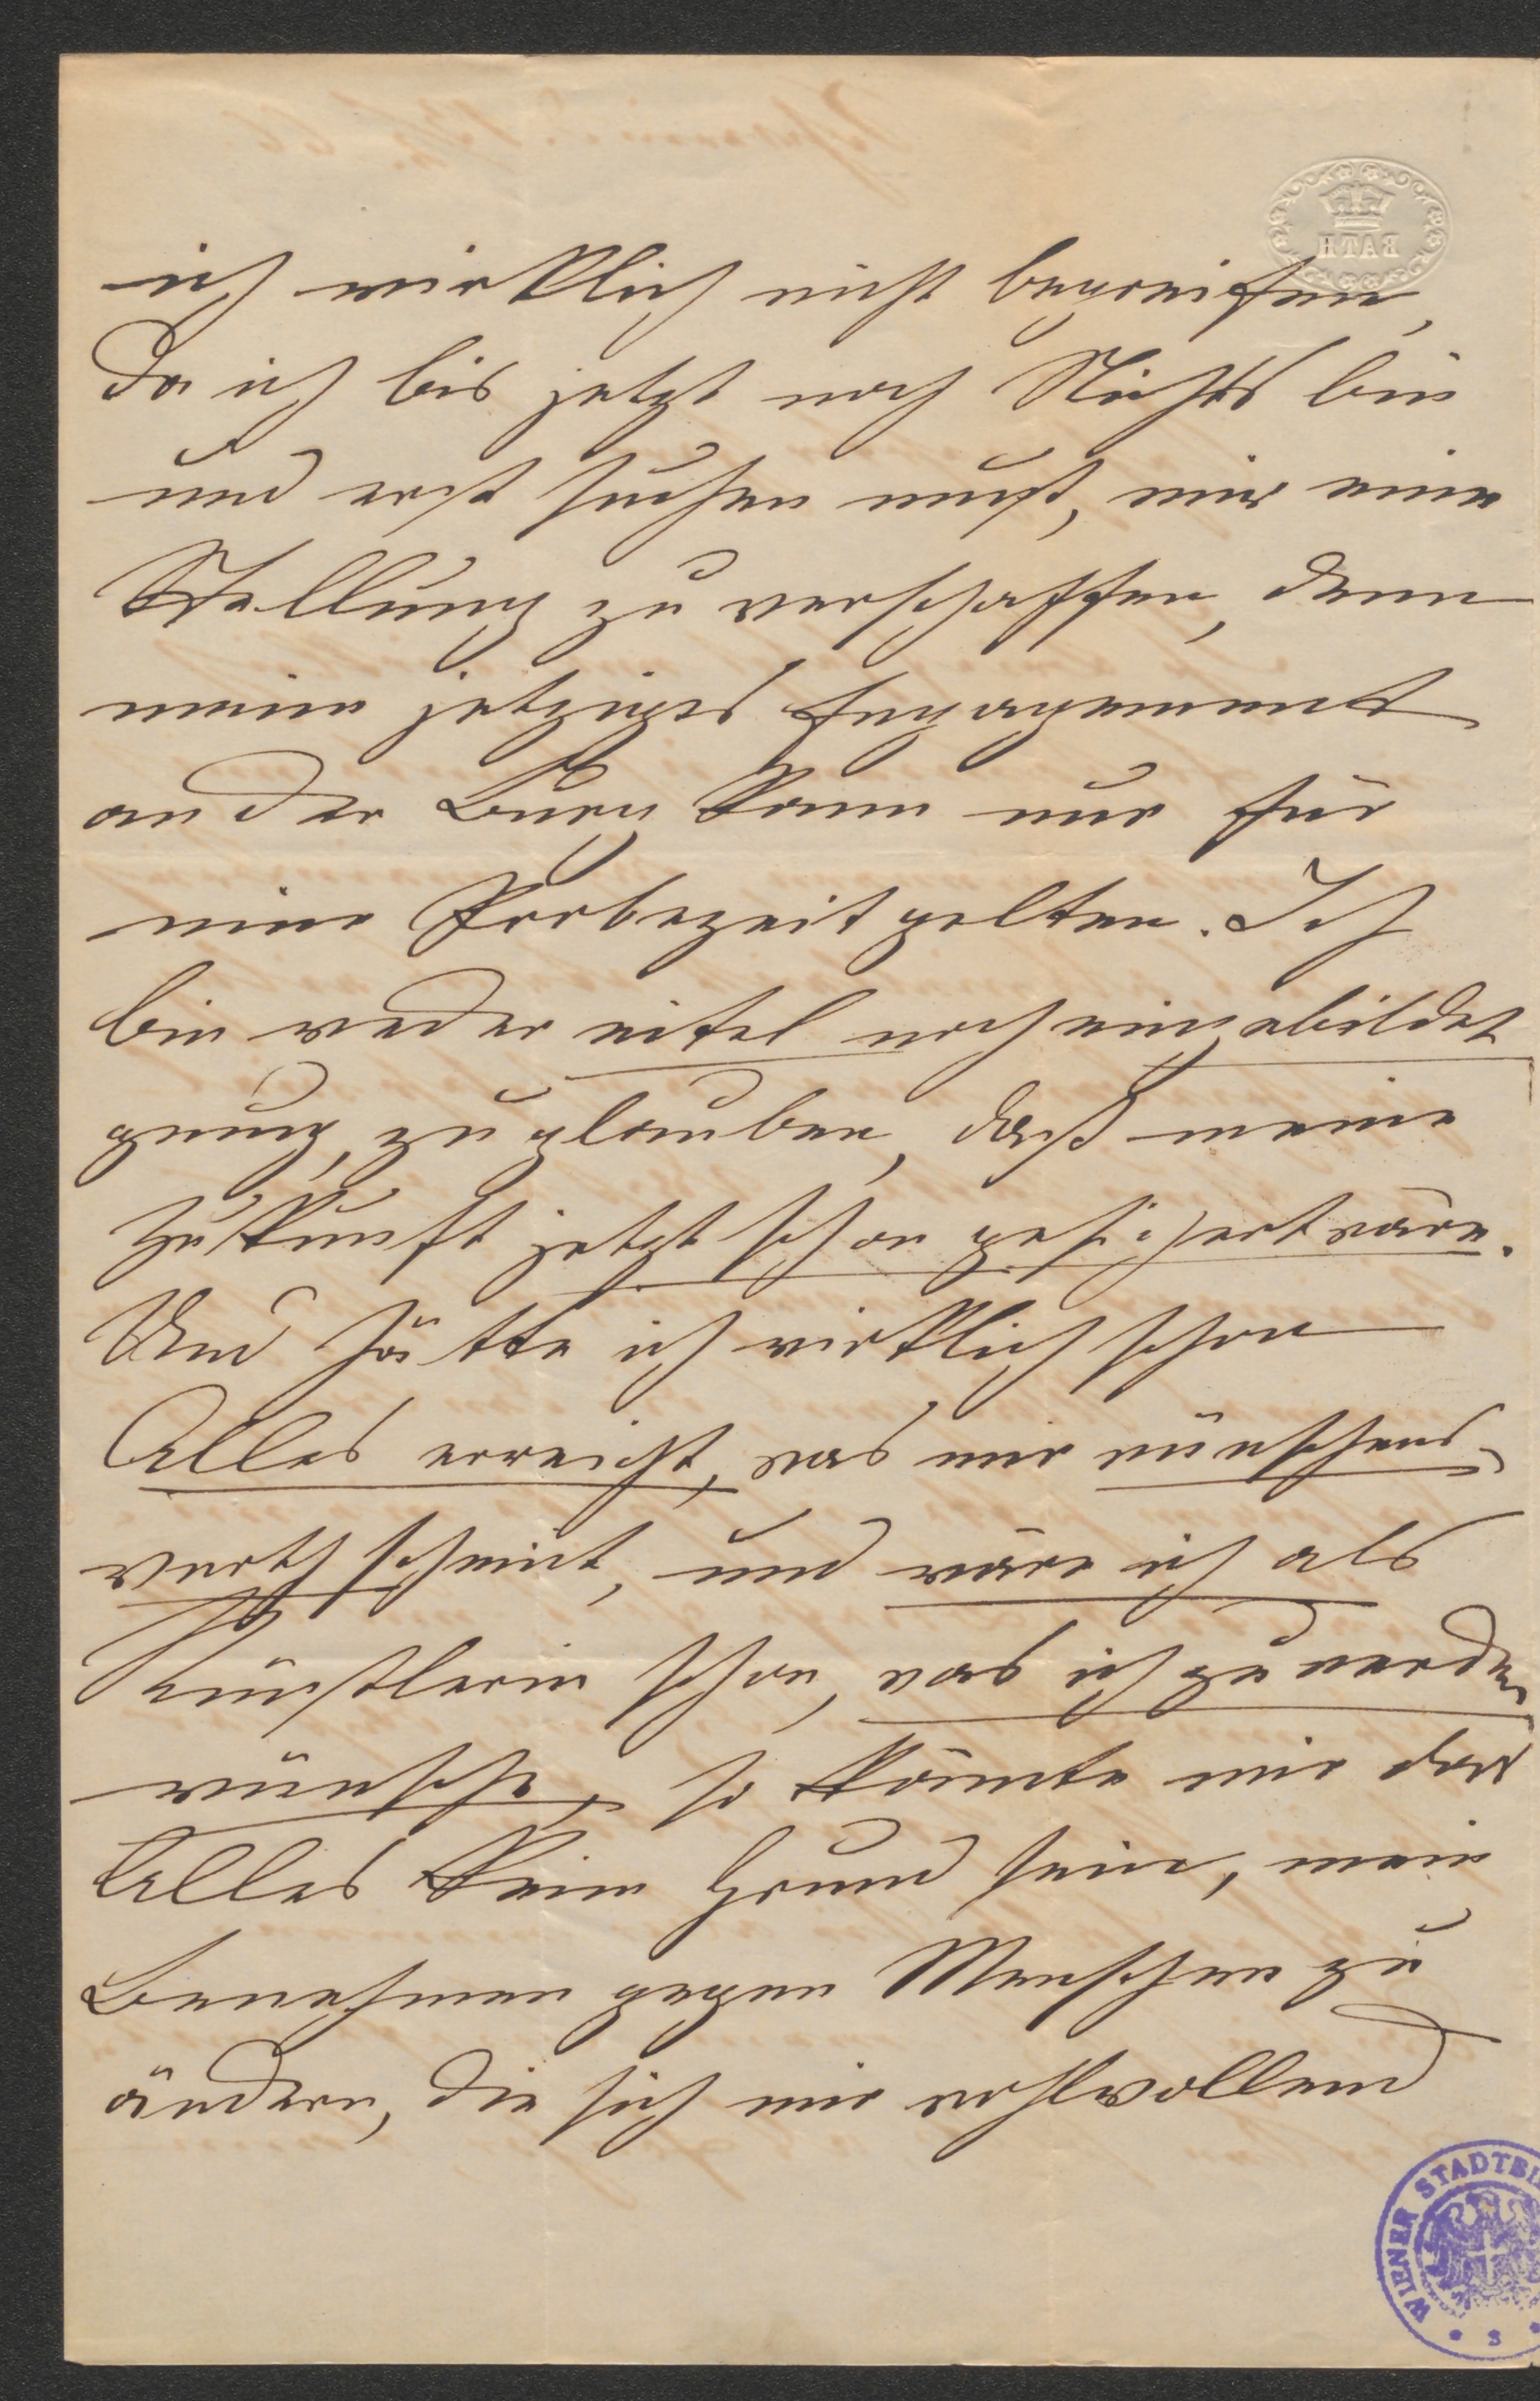 BATH
ich wirklich nicht begreifen,
da ich bis jetzt noch Nichts bin
und erst suchen muß, mir eine
Stellung zu verschaffen, denn
mein jetziges Engagement
an der Burg kann nur für
eine Probezeit gelten. Ich
bin weder eitel noch eingebildet
genug, zu glauben, daß meine
Zukunft jetzt schon gesichert wäre.
Und hätte ich wirklich schon
Alles erreicht, was mir wünschens-
werth scheint, und wäre ich als
Künstlerin schon, was ich zu werden
wünsche, so könnte mir das
Alles kein Grund sein, mein
Benehmen gegen Menschen zu
ändern, die sich mir wohlwollend
WIENER STADTBI